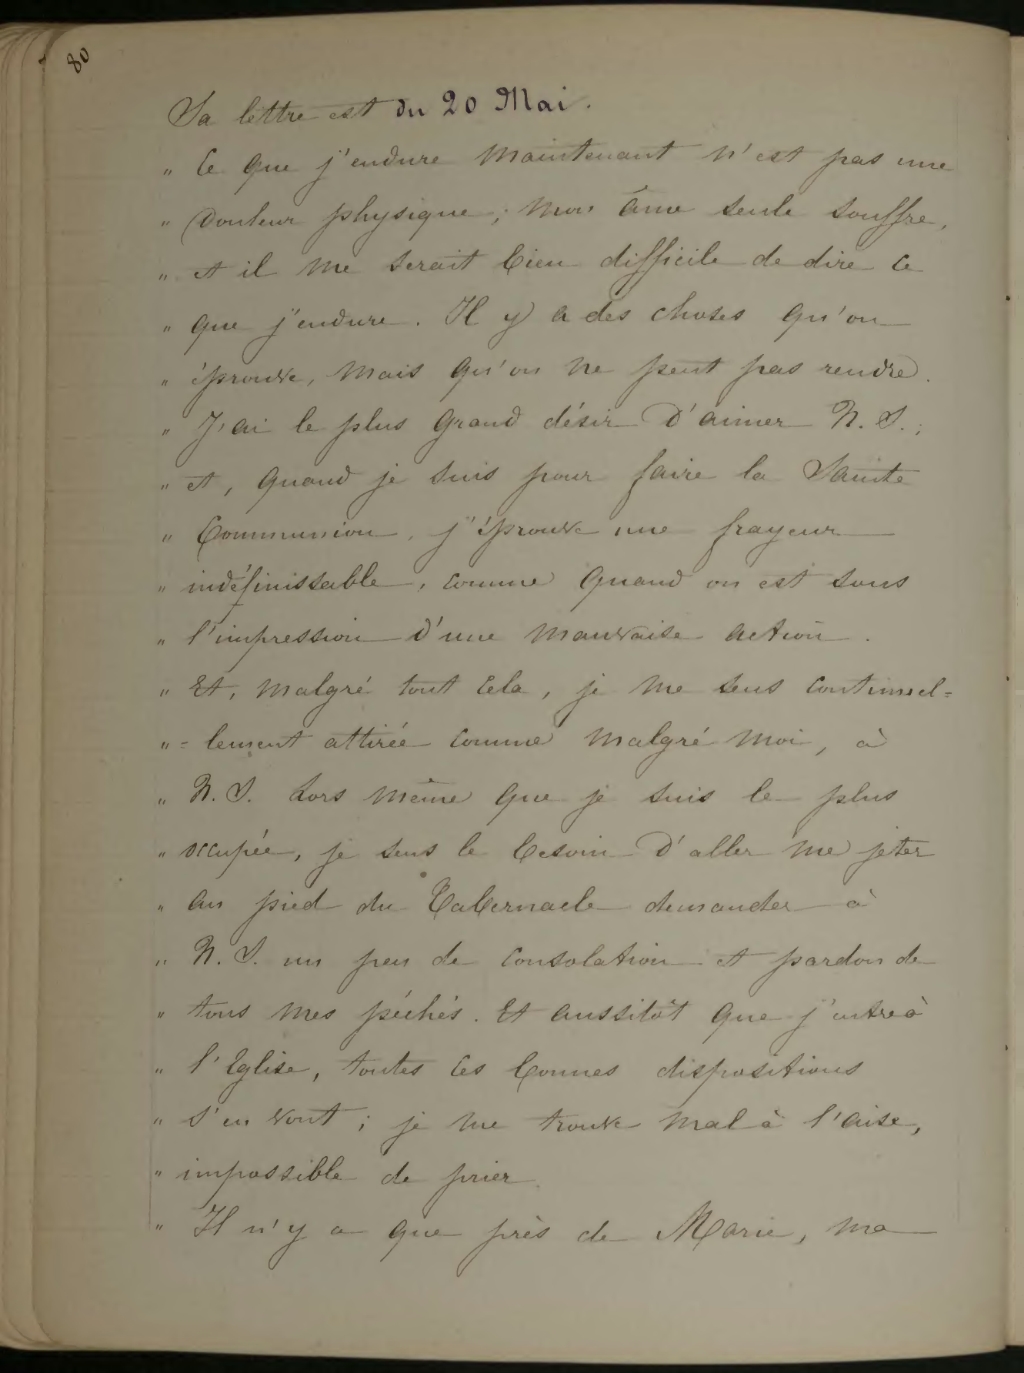 80
Sa lettre est du 20 Mai.
" Ce que j'endure maintenant n'est pas une
" Douleur physique ; mon âme seule souffre,
" et il me serait bien difficile de dire ce
" que j'endure. Il y a des choses qu'on
" éprouve, mais qu'on ne peut pas rendre.
" J'ai le plus grand désir d'aimer N. S. ;
" et, quand je suis pour faire la Sainte
" Communion, j'éprouve une frayeur
" indéfinissable, comme quand on est sous
" l'impression d'une mauvaise action.
" Et, malgré tout cela, je me sens continuel=
" = lement attirée comme malgré moi, à
" N. S. Lors même que je suis le plus
" occupée, je sens le besoin d'aller me jeter
" au pied du Tabernacle demander à
" N. S. un peu de consolation et pardon de
" tous mes péchés. Et aussitôt que j'entre à
" l'Eglise, toutes ces bonnes dispositions
" s'en vont ; je me trouve mal à l'aise,
" impossible de prier.
" Il n'y a que près de Marie, ma